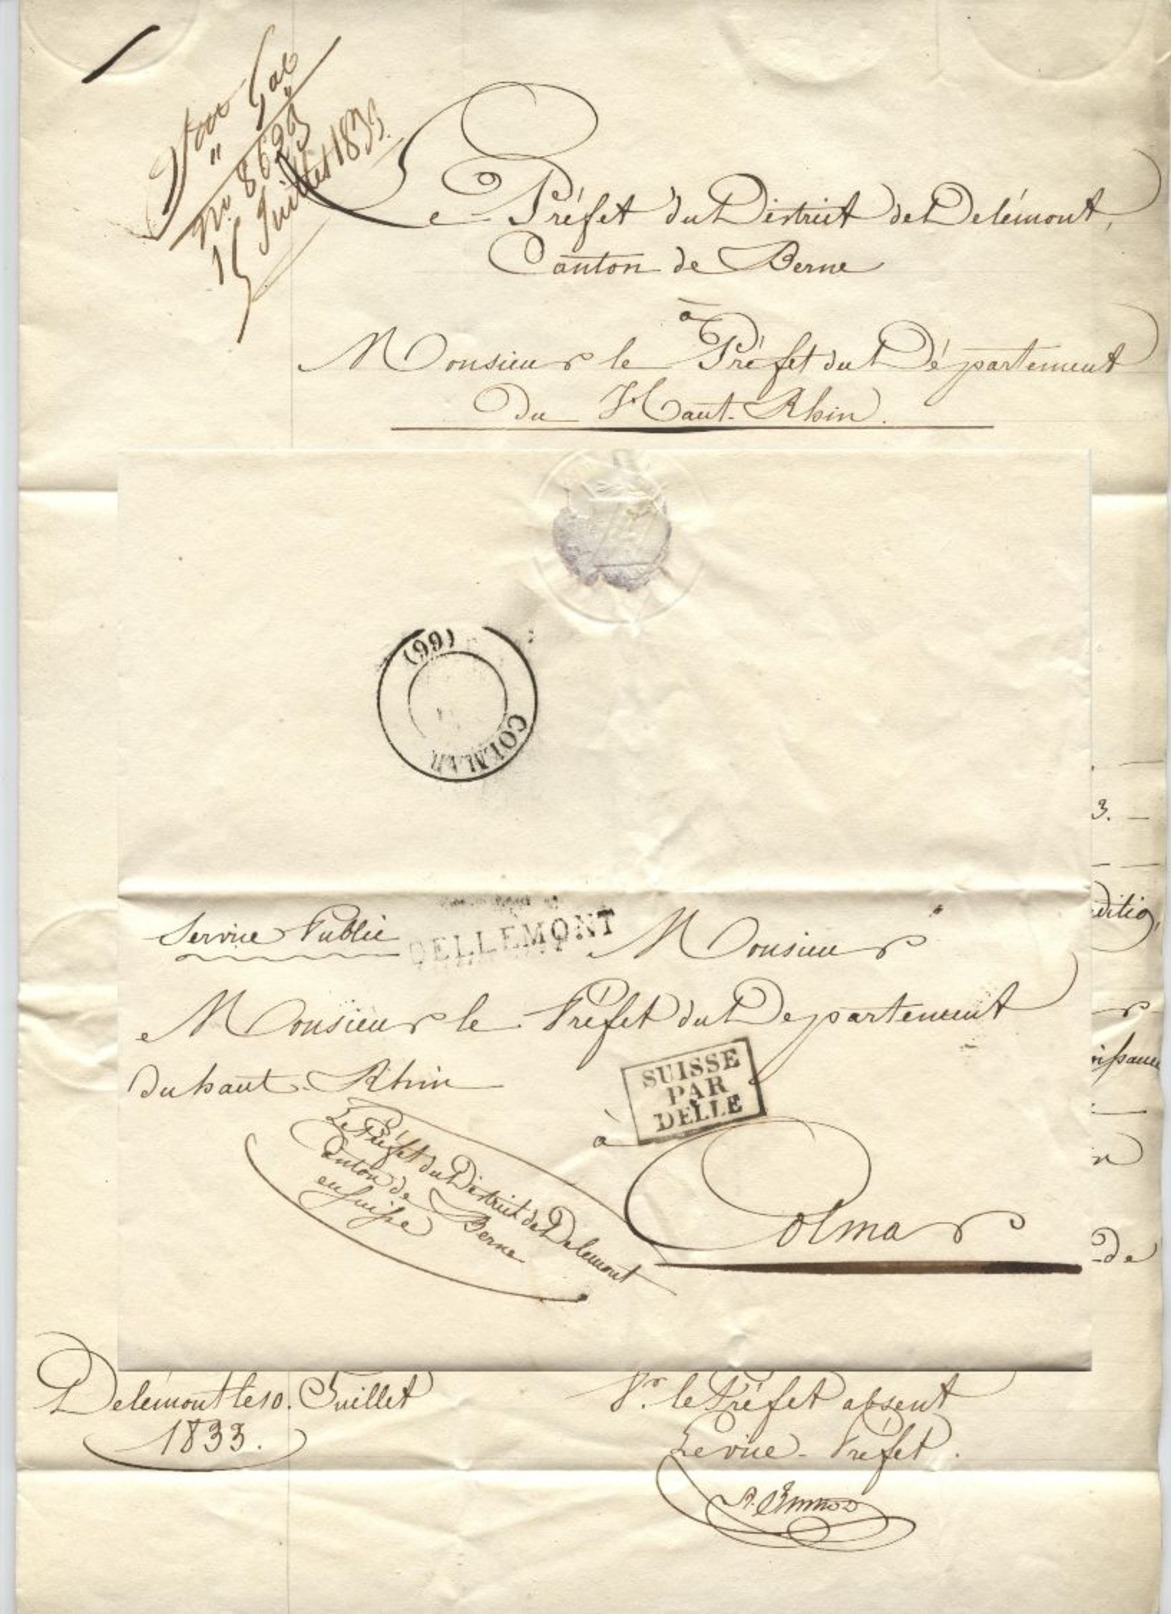 Gal
"
"
No. 8629
15 Juillet 1833.
Le Préfet du District de Delémont,
Canton de Berne
à
Monsieur le Préfet du Département
du Haut-Rhin.
(66)
COLMAR
3.
Service Public
DELLEMONT
Monsieur
Monsieur le Préfet du Département
du haut-Rhin
SUISSE
PAR
DELLE
à
Colmar
Le Préfet du District de Delemont
Canton de Berne
en Suisse
de
Delémont le 10. Juillet
1833.
Pr. le Préfet absent
Le vice-Préfet.